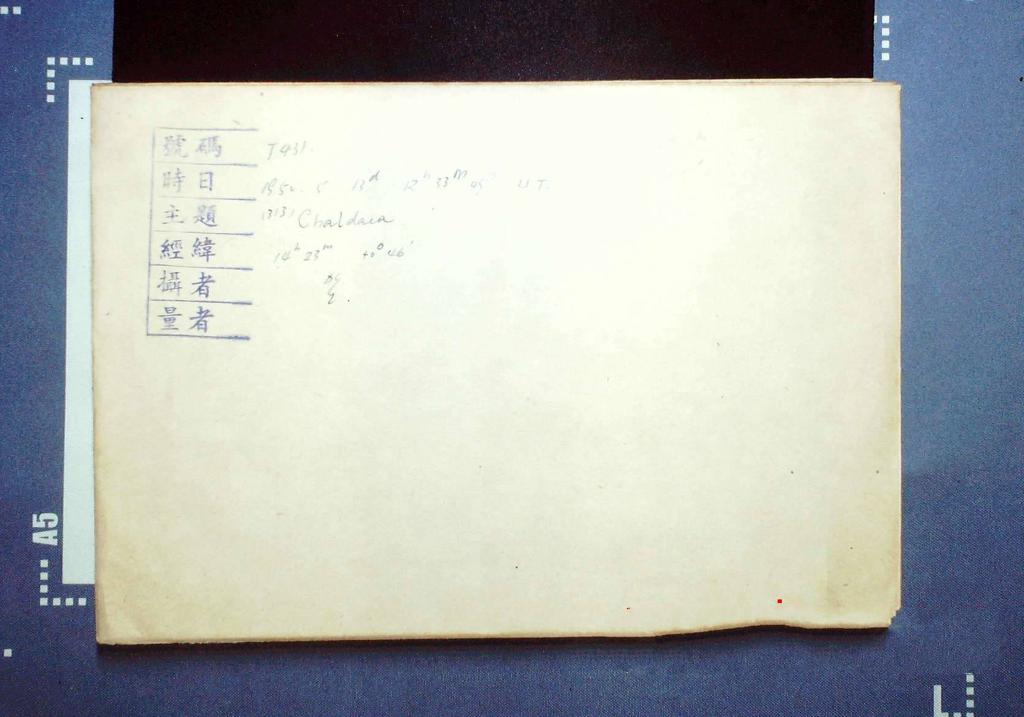 號碼 T431.
時日 1952. 5 13d 12h 33m 45s U.T.
主題 (313) Chaldaea
經緯 14h 23m +0° 46'
攝者
量者
A5